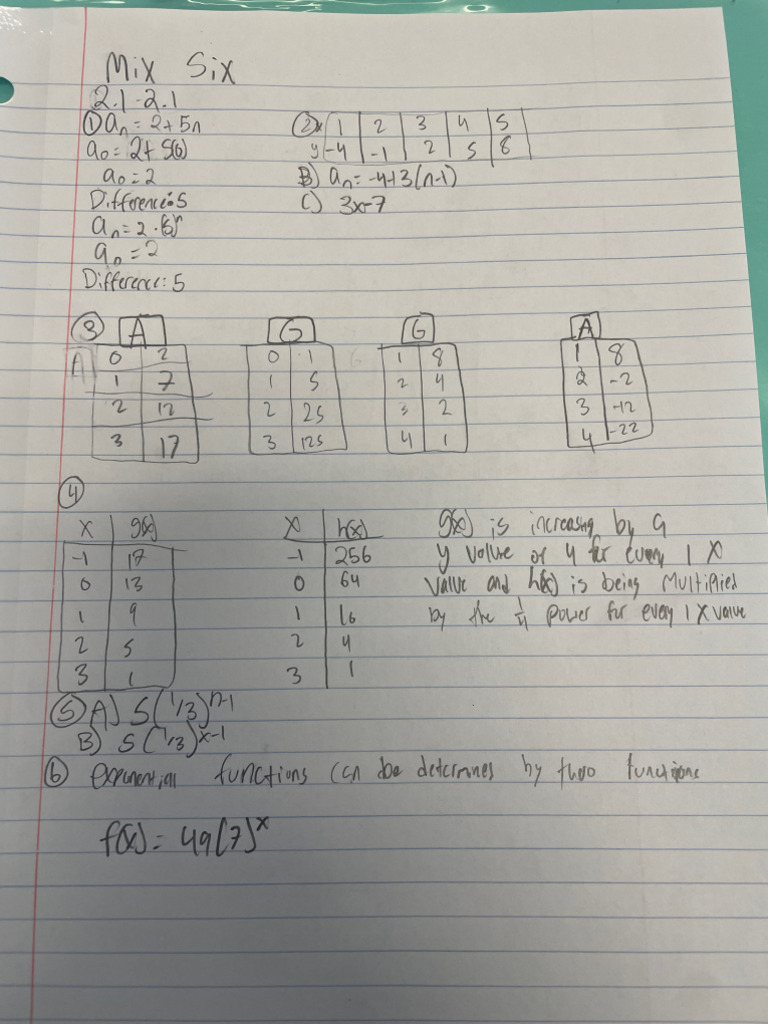 Mix Six
2.1-2.1
① aₙ = 2+5n
a₀ = 2+5(0)
a₀ = 2
Difference: 5
aₙ = 2·(5)ⁿ
a₀ = 2
Difference: 5
② x 1 2 3 4 5
y -4 -1 2 5 8
B) aₙ = -4+3(n-1)
C) 3x-7
③ A G G A
A
0 2
1 7
2 12
3 17
0 1
1 5
2 25
3 125
1 8
2 4
3 2
4 1
1 8
2 -2
3 -12
4 -22
④
x g(x)
-1 17
0 13
1 9
2 5
3 1
x h(x)
-1 256
0 64
1 16
2 4
3 1
g(x) is increasing by a
y value of 4 for every 1 x
value and h(x) is being multiplied
by the 1/4 power for every 1 x value
⑤ A) 5(1/3)ⁿ⁻¹
B) 5(1/3)ˣ⁻¹
⑥ exponential functions can be determines by two functions
f(x) = 49(7)ˣ